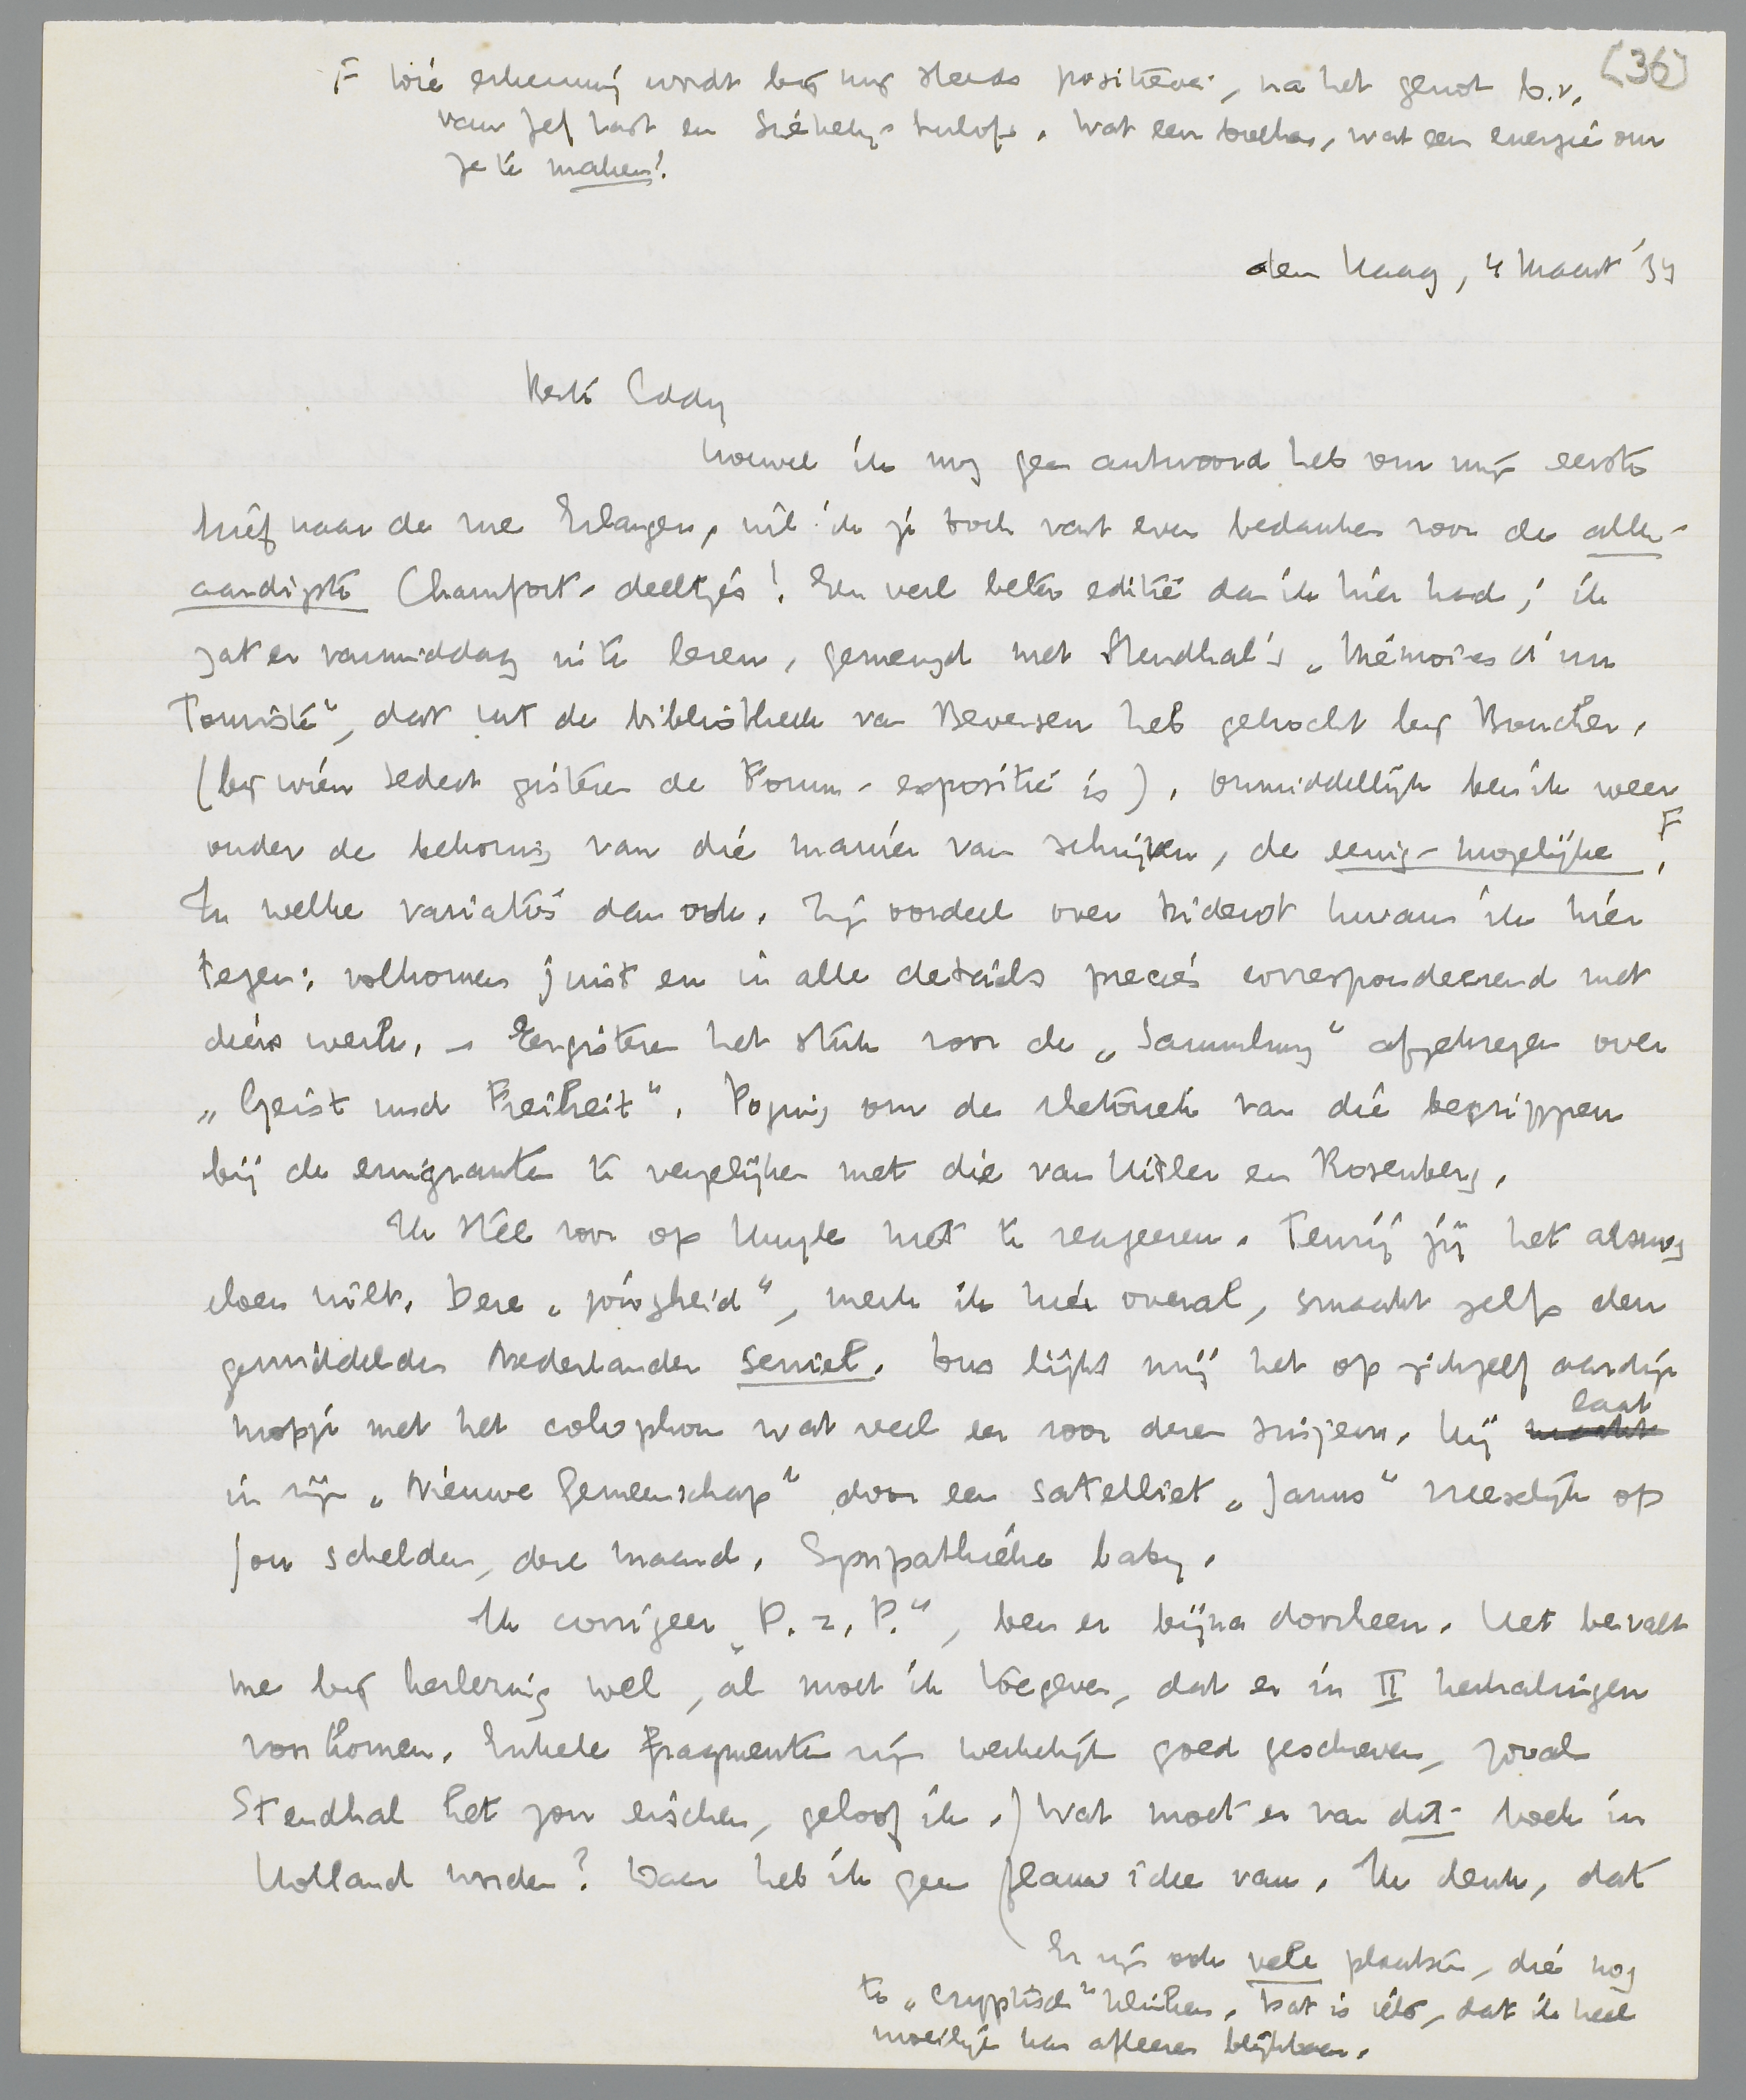 [36]
F Die erkenning wordt bij mij steeds positiever, na het genot b.v.
van Jef Last en Székely-Lulofs. Wat een boeken, wat een energie om
ze te maken!
den Haag, 4 Maart '34
Beste Eddy
Hoewel ik nog geen antwoord heb van mijn eerste
brief naar de rue Erlanger, wil ik je toch vast even bedanken voor de aller-
aardigste Chamfort-deeltjes! Een veel beter editie dan ik hier had; ik
zat er vanmiddag in te lezen, gemengd met Stendhal's „Mémoires d'un
Touriste", dat uit de bibliotheek van Beversen heb gekocht bij Boucher.
(bij wien sedert gisteren de Forum-expositie is). Onmiddellijk ben ik weer
onder de bekoring van die manier van schrijven, de eenig-mogelijke F,
In welke variaties dan ook. Zijn oordeel over Diderot kwam ik hier
tegen: volkomen juist en in alle details precies correspondeerend met
diens werk. – Eergisteren het stuk voor de „Sammlung" afgekregen over
„Geist und Freiheit". Poging om de rhetoriek van die begrippen
bij de emigranten te vergelijken met die van Hitler en Rosenberg.
Ik stel voor op Kuyle niet te reageeren. Tenzij jij het alsnog
doen wilt. Deze „jongheid", merk ik hier overal, smaakt zelfs den
gemiddelden Nederlander seniel. Dus lijkt mij het op zichzelf aardige
mopje met het colophon wat veel eer voor dezen snijboon. Hij laat
in zijn „Nieuwe Gemeenschap" door een satelliet „Janus" vreeselijk op
jou schelden, deze maand. Sympathieke baby.
Ik corrigeer „P. z. P.", ben er bijna doorheen. Het bevalt
me bij herlezing wel, al moet ik toegeven, dat er in II herhalingen
voorkomen. Enkele fragmenten zijn werkelijk goed geschreven, zooals
Stendhal het zou eischen, geloof ik.) Wat moet er van dit boek in
Holland worden? Daar heb ik geen flauw idee van. Ik denk, dat
Er zijn ook vele plaatsen, die nog
te „cryptisch" klinken. Dat is iets, dat ik heel
moeilijk kan afleeren blijkbaar.